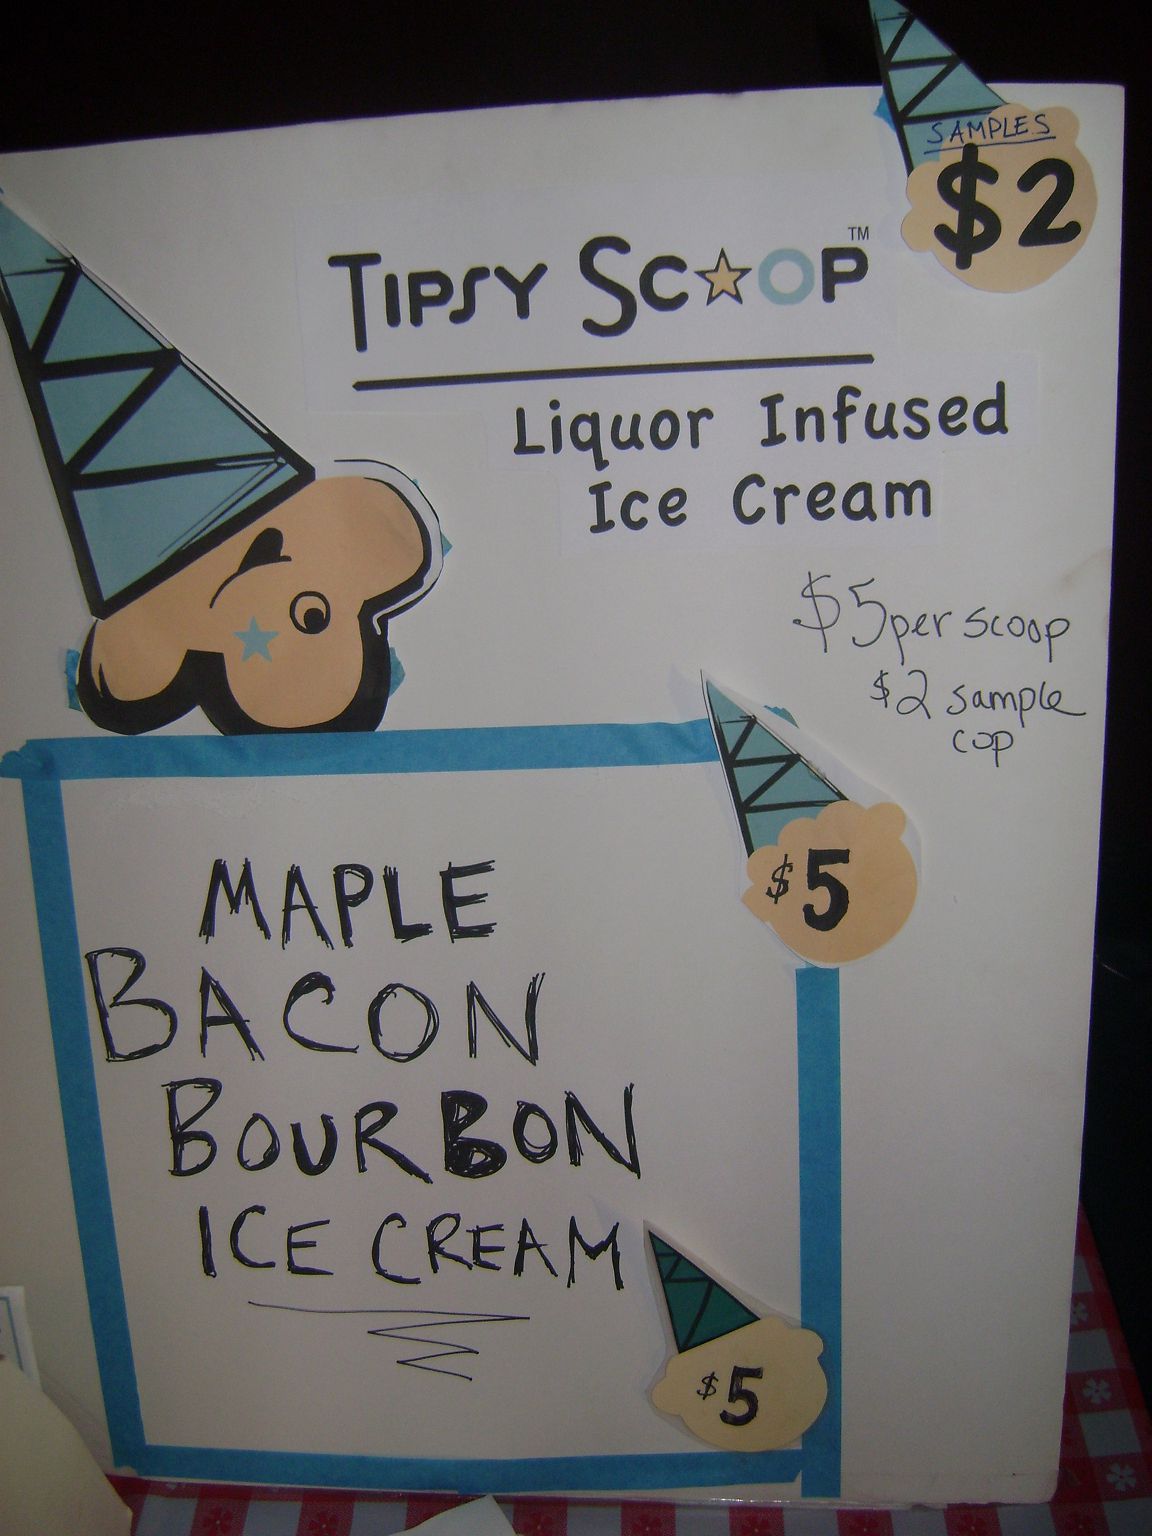 SAMPLES
$2
TIPSY SCOOP™
Liquor Infused
Ice Cream
$5 per scoop
$2 sample
cop
$5
MAPLE
BACON
BOURBON
ICE CREAM
$5